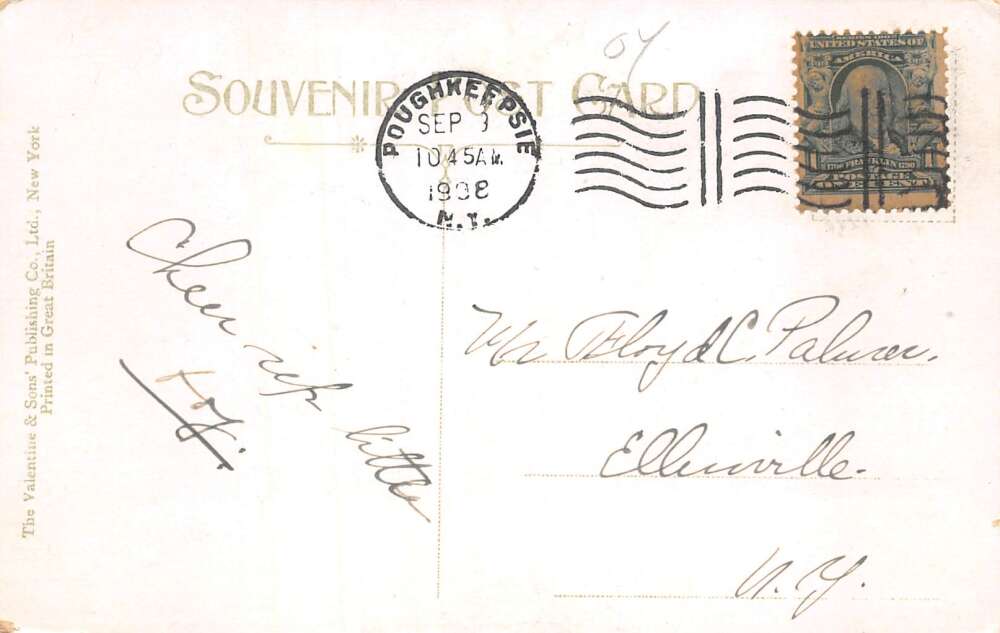 SOUVENIR POST CARD
POUGHKEEPSIE
SEP 3
10 45 AM
1908
N.Y.
SERIES 1902
UNITED STATES OF
AMERICA
1706 FRANKLIN 1790
POSTAGE
ONE CENT
The Valentine & Sons' Publishing Co., Ltd., New York
Printed in Great Britain
Cheer up little
Mr Floyd C. Palmer.
Ellenville.
N.Y.